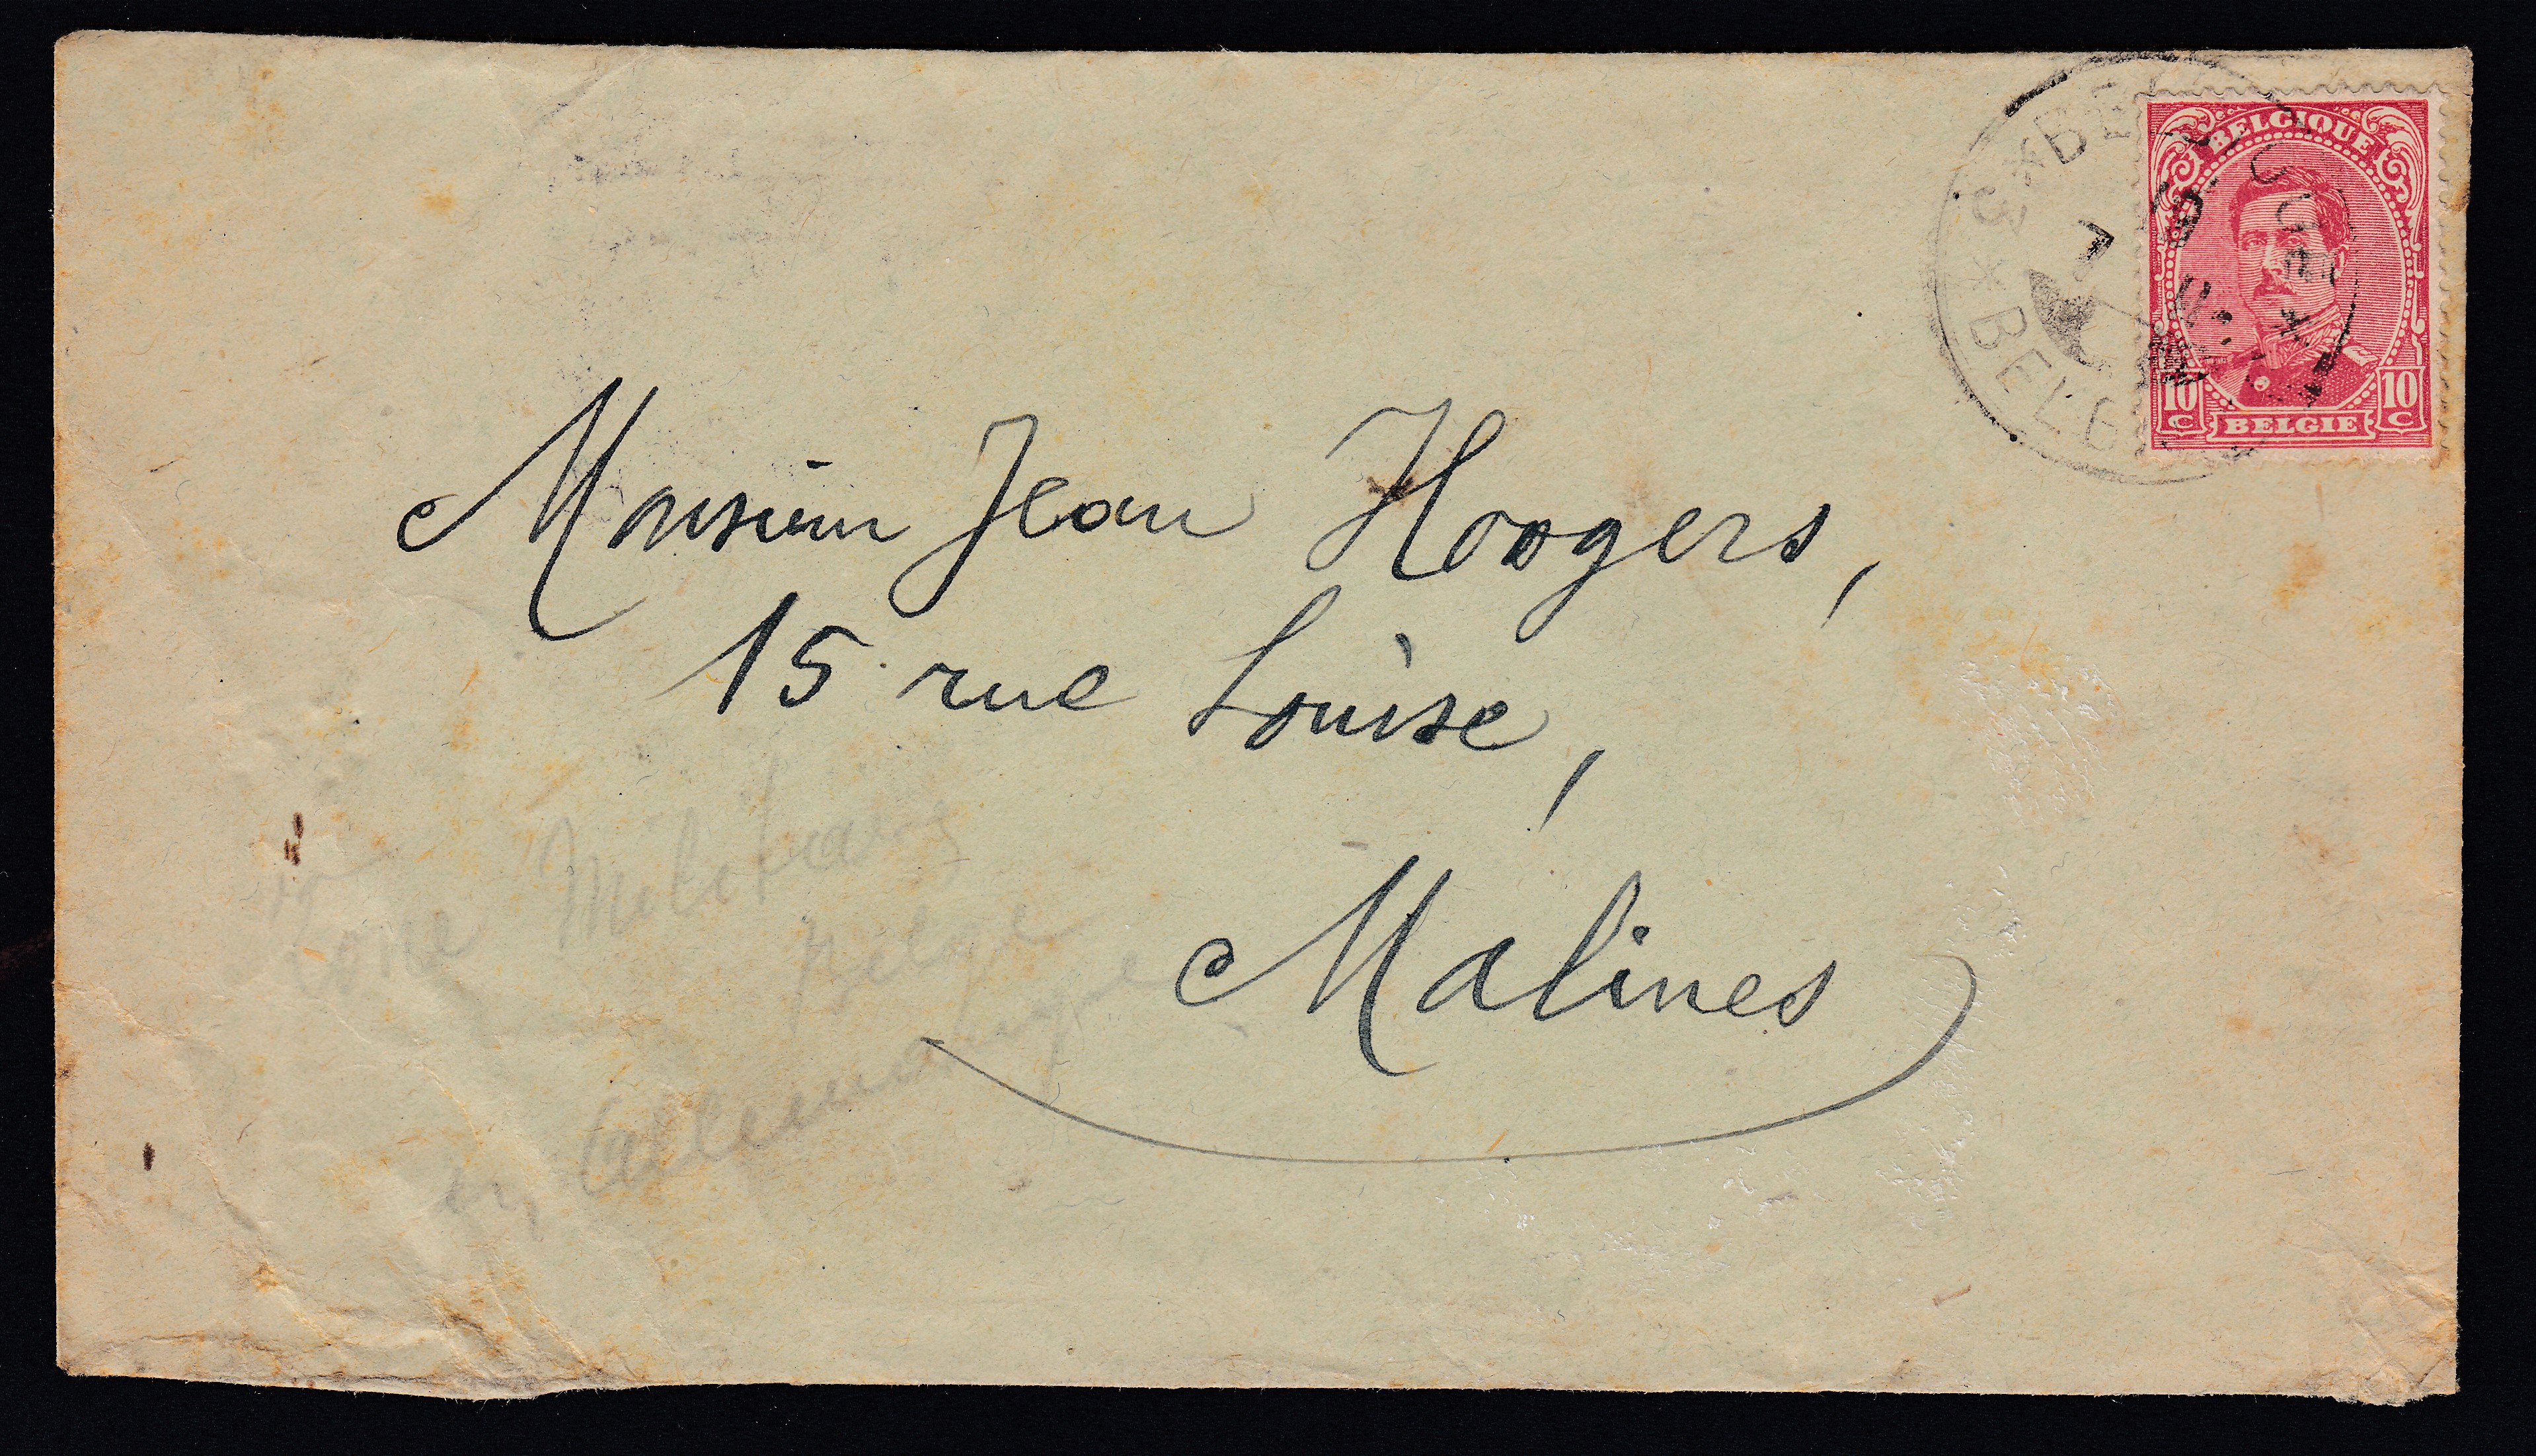 BELGIQUE
10 C
10 C
BELGIË
Monsieur Jean Hoogers,
15 rue Louise,
Malines
Zone Militaire
Belge
en Allemagne